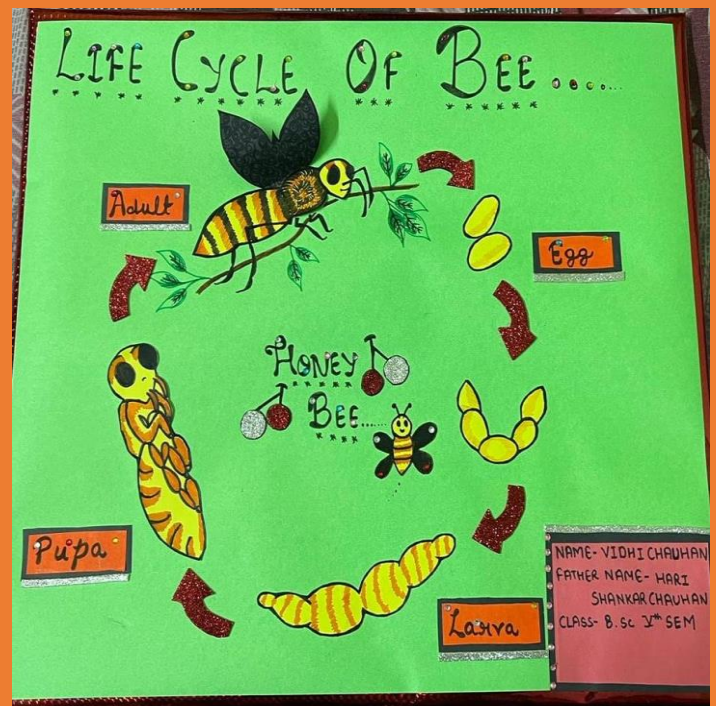 LIFE CYCLE OF BEE.....
Adult
Egg
HONEY
BEE......
Pupa
Larva
NAME- VIDHI CHAUHAN
FATHER NAME- HARI
SHANKAR CHAUHAN
CLASS- B.Sc Vth SEM